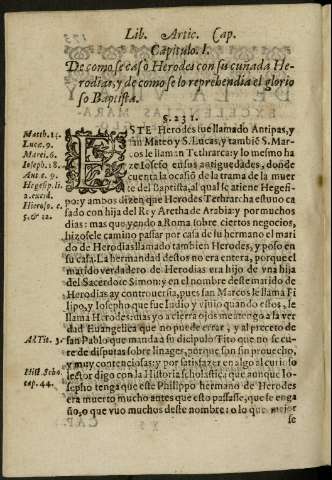 Lib. Artic. Cap.
Capitulo. I.
De como se casò Herodes con su cuñada He-
rodias, y de como se lo reprehendia el glorio
so Baptista.
§. 231.
ESTE Herodes fue llamado Antipas, y
san Mateo y S. Lucas, y tambiẽ S. Mar-
cos le llaman Tethrarcha: y lo mesmo ha
ze Iosefo en sus antiguedades, donde
cuenta la ocasiõ de la trama de la muer
te del Baptista, al qual se atiene Hegesi-
po: y ambos dizen que Herodes Tethrarcha estuuo ca
sado con hija del Rey Aretha de Arabia: y por muchos
dias: mas que yendo a Roma sobre ciertos negocios,
hizosele camino passar por casa de su hermano el mari
do de Herodias llamado tambien Herodes, y poso en
su casa. La hermandad destos no era entera, porque el
marido verdadero de Herodias era hijo de vna hija
del Sacerdote Simon: y en el nombre deste marido de
Herodias ay controuersia, pues san Marcos le llama Fi
lipo, y Iosepho que fue Iudio y viuio quando estos, le
llama Herodes: mas yo a cierra ojos me atengo a la ver
dad Euangelica que no puede errar, y al precepto de
san Pablo que manda a su dicipulo Tito que no se cu-
re de disputas sobre linages, porque son sin prouecho,
y muy contenciosas: y por satisfazer en algo al curioso
lector digo con la Historia scholastica, que aunque Io-
sepho tenga que este Philippo hermano de Herodes
era muerto mucho antes que esto passasse, que se enga
ño, o que vuo muchos deste nombre: o lo que mejor
se
Matth. 14.
Luca. 9.
Marci. 6.
Ioseph. 18.
Ant. c. 9.
Hegesip. li.
2. excid.
Hieroso. c.
5. & 12.
Ad Tit. 3.
Hist. Scho.
cap. 44.